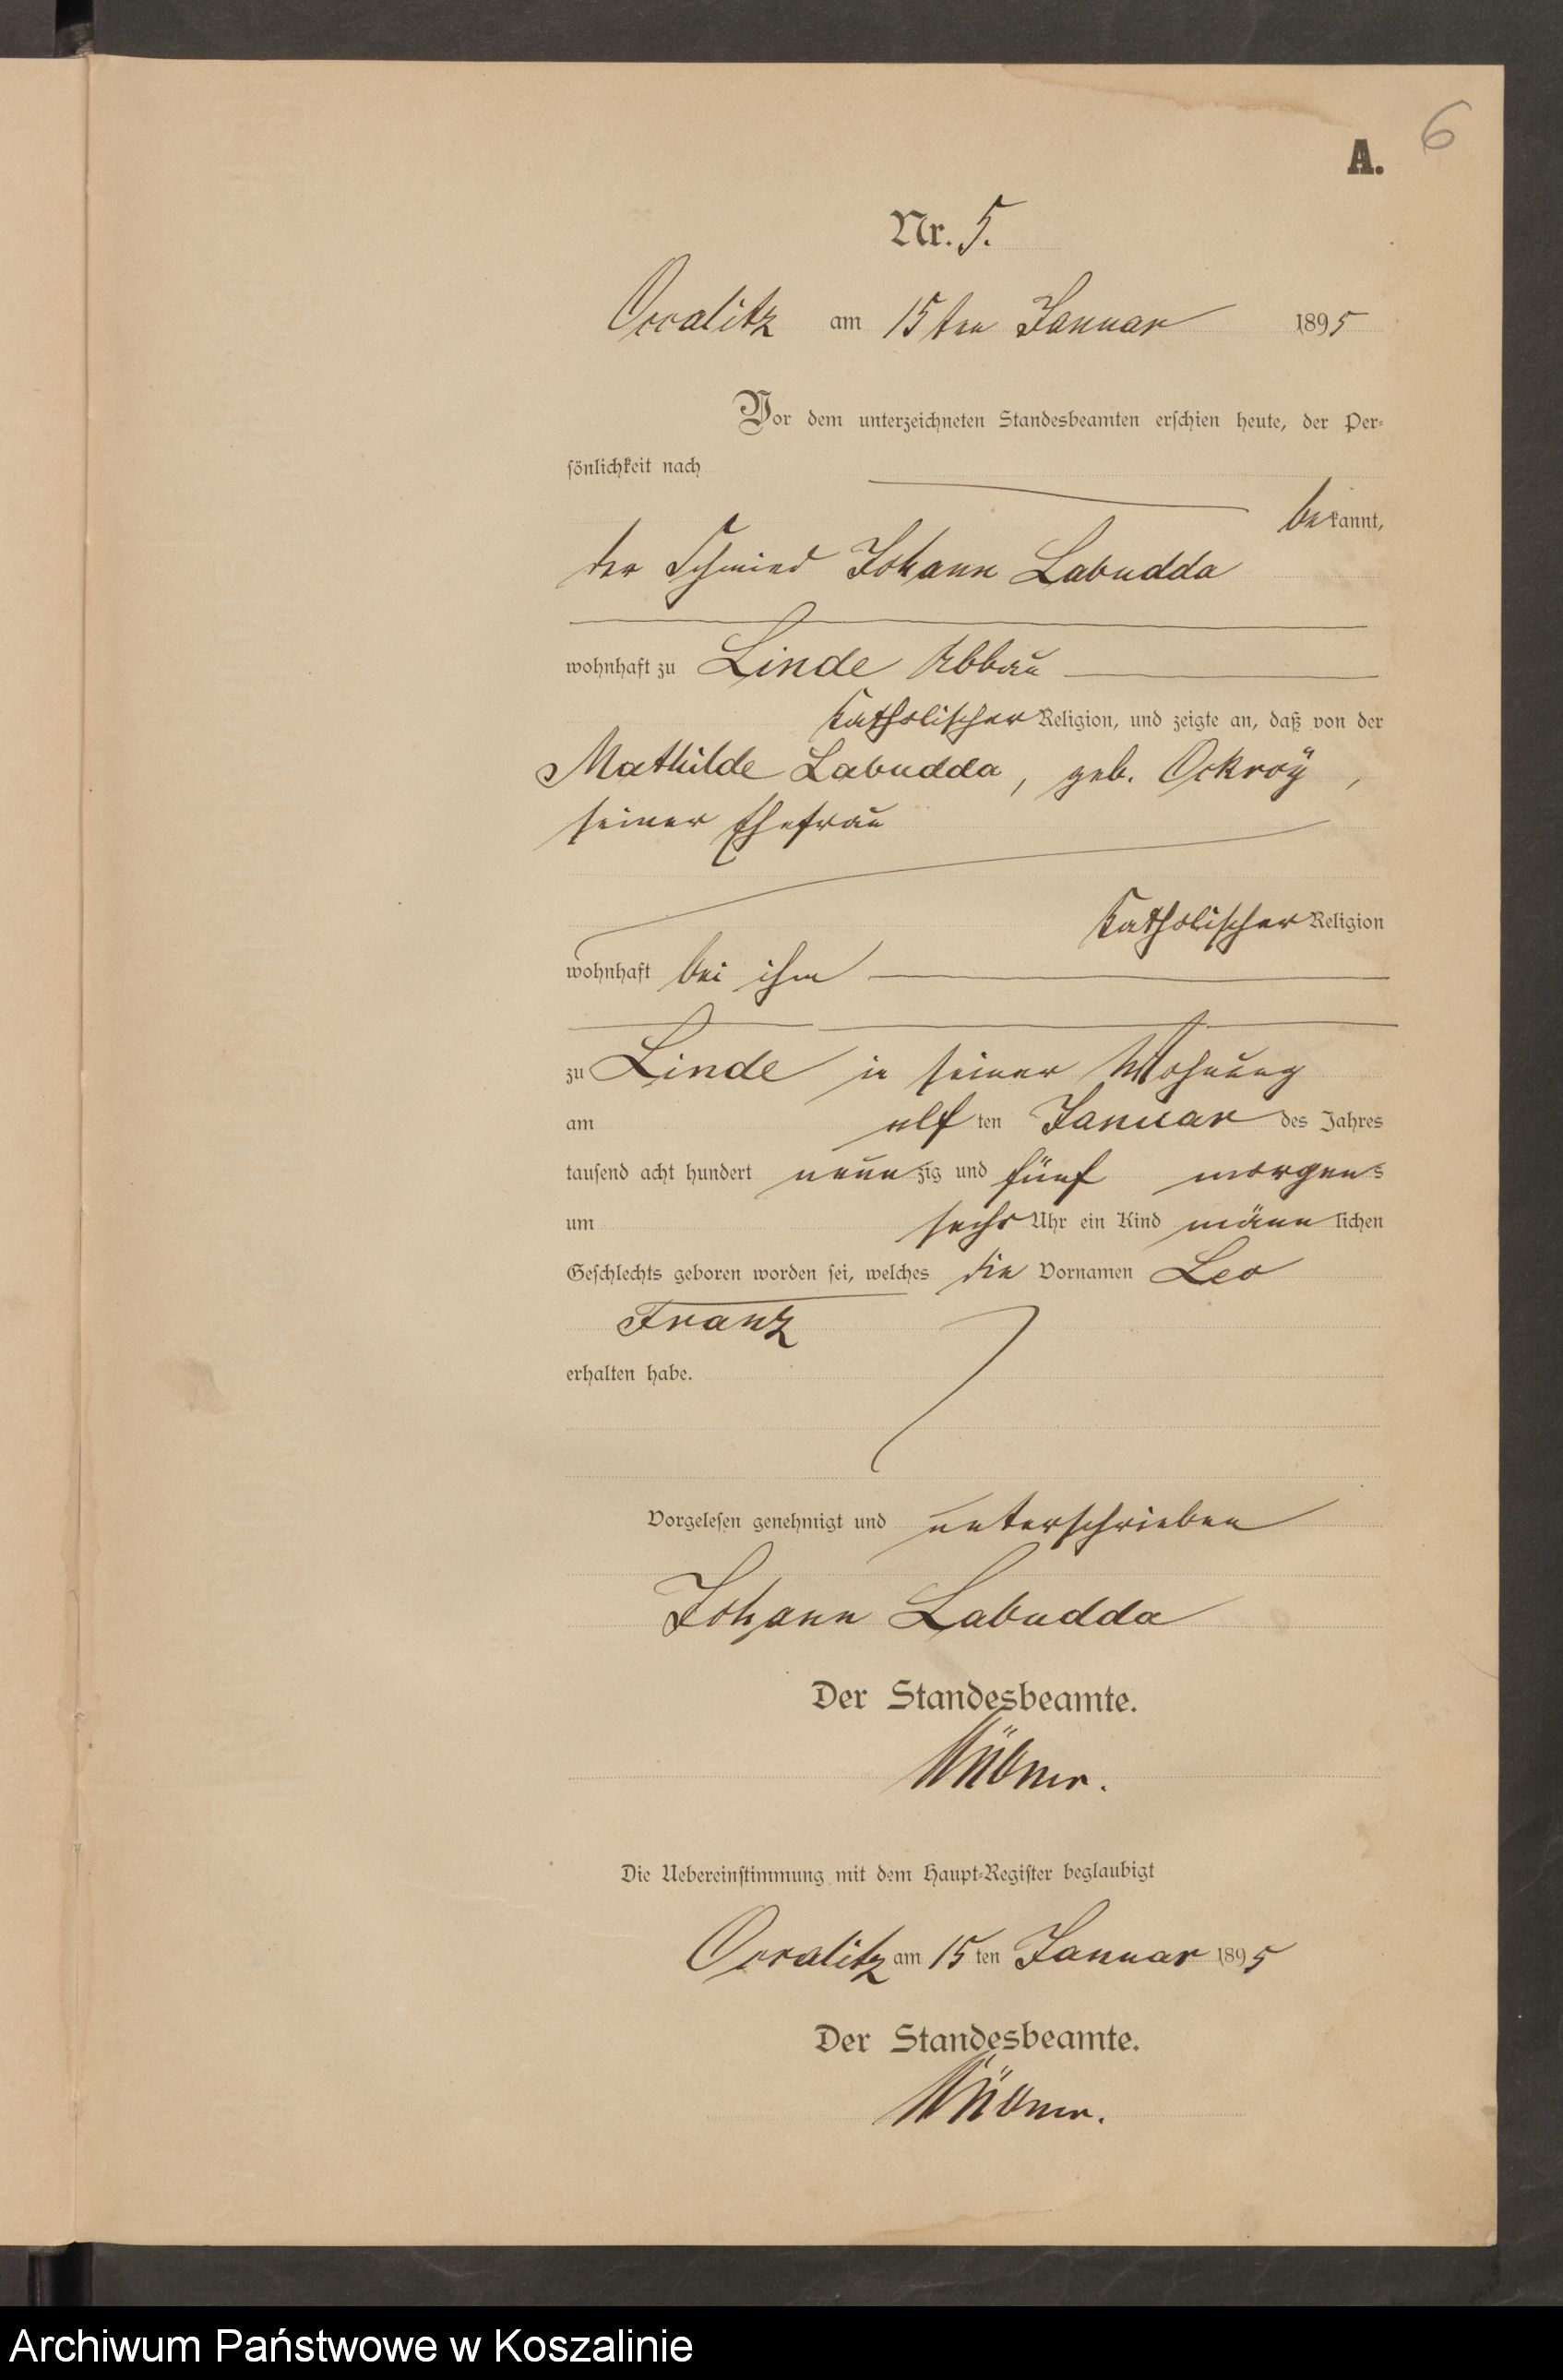 6
A.
Nr. 5.
Occalitz am 15ten Januar 1895
Vor dem unterzeichneten Standesbeamten erschien heute, der Per-
sönlichkeit nach
bekannt,
der Schmied Johann Labudda
wohnhaft zu Linde Abbau
katholischer Religion, und zeigte an, daß von der
Mathilde Labudda, geb. Ockroÿ,
seiner Ehefrau
katholischer Religion
wohnhaft bei ihm
zu Linde in seiner Wohnung
am elf ten Januar des Jahres
tausend acht hundert neunzig und fünf morgens
um sechs Uhr ein Kind männlichen
Geschlechts geboren worden sei, welches die Vornamen Leo
Franz
erhalten habe.
Vorgelesen genehmigt und unterschrieben
Johann Labudda
Der Standesbeamte.
Die Uebereinstimmung mit dem Haupt-Register beglaubigt
Occalitz am 15ten Januar 1895
Der Standesbeamte.
Archiwum Państwowe w Koszalinie